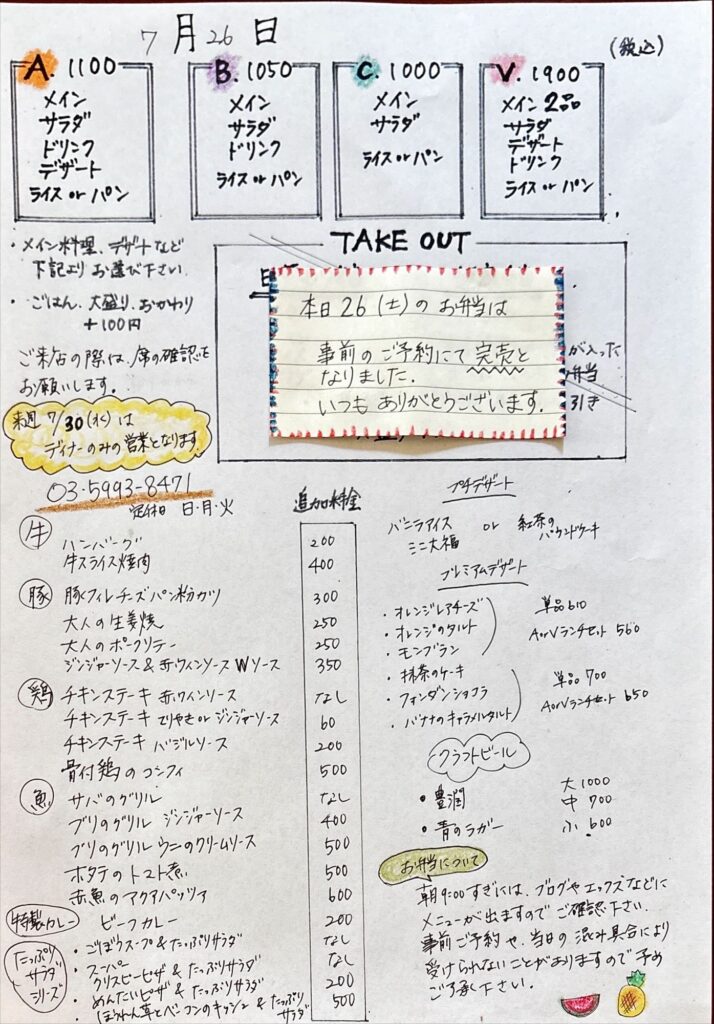 7月26日
(税込)
A. 1100
メイン
サラダ
ドリンク
デザート
ライス or パン
B. 1050
メイン
サラダ
ドリンク
ライス or パン
C. 1000
メイン
サラダ
ライス or パン
V. 1900
メイン 2品
サラダ
デザート
ドリンク
ライス or パン
・メイン料理、デザートなど
下記よりお選び下さい.
・ごはん、大盛り、おかわり
+100円
ご来店の際は、席の確認を
お願いします。
来週 7/30(水)は
ディナーのみの営業となります.
03-5993-8471
定休日 日・月・火
TAKE OUT
本日26(土)のお弁当は
事前のご予約にて完売と
なりました.
いつもありがとうございます.
が入った
弁当
引き
追加料金
牛
ハンバーグ 200
牛スライス焼肉 400
豚
豚フィレチーズパン粉カツ 300
大人の生姜焼 250
大人のポークソテー 250
ジンジャーソース&赤ワインソース Wソース 350
鶏
チキンステーキ 赤ワインソース なし
チキンステーキ てりやき or ジンジャーソース 60
チキンステーキ バジルソース 200
骨付鶏のコンフィ 500
魚
サバのグリル なし
ブリのグリル ジンジャーソース 400
ブリのグリル ウニのクリームソース 500
ホタテのトマト煮 500
赤魚のアクアパッツァ 600
特製カレー
ビーフカレー 200
たっぷりサラダシリーズ
・ごぼうスープ&たっぷりサラダ なし
・スーパークリスピーピザ & たっぷりサラダ なし
・めんたいピザ & たっぷりサラダ 200
・ほうれん草とベーコンのキッシュ & たっぷりサラダ 500
プチデザート
バニラアイス
ミニ大福
or
紅茶の
パウンドケーキ
プレミアムデザート
・オレンジレアチーズ
・オレンジのタルト
・モンブラン
単品610
AorVランチセット 560
・抹茶のケーキ
・フォンダンショコラ
・バナナのキャラメルタルト
単品 700
AorVランチセット 650
クラフトビール
・豊潤
・青のラガー
大 1000
中 700
小 600
お弁当について
朝9:00すぎには、ブログやエックスなどに
メニューが出ますのでご確認下さい.
事前ご予約や、当日の混み具合により
受けられないことがありますので予め
ご了承下さい.